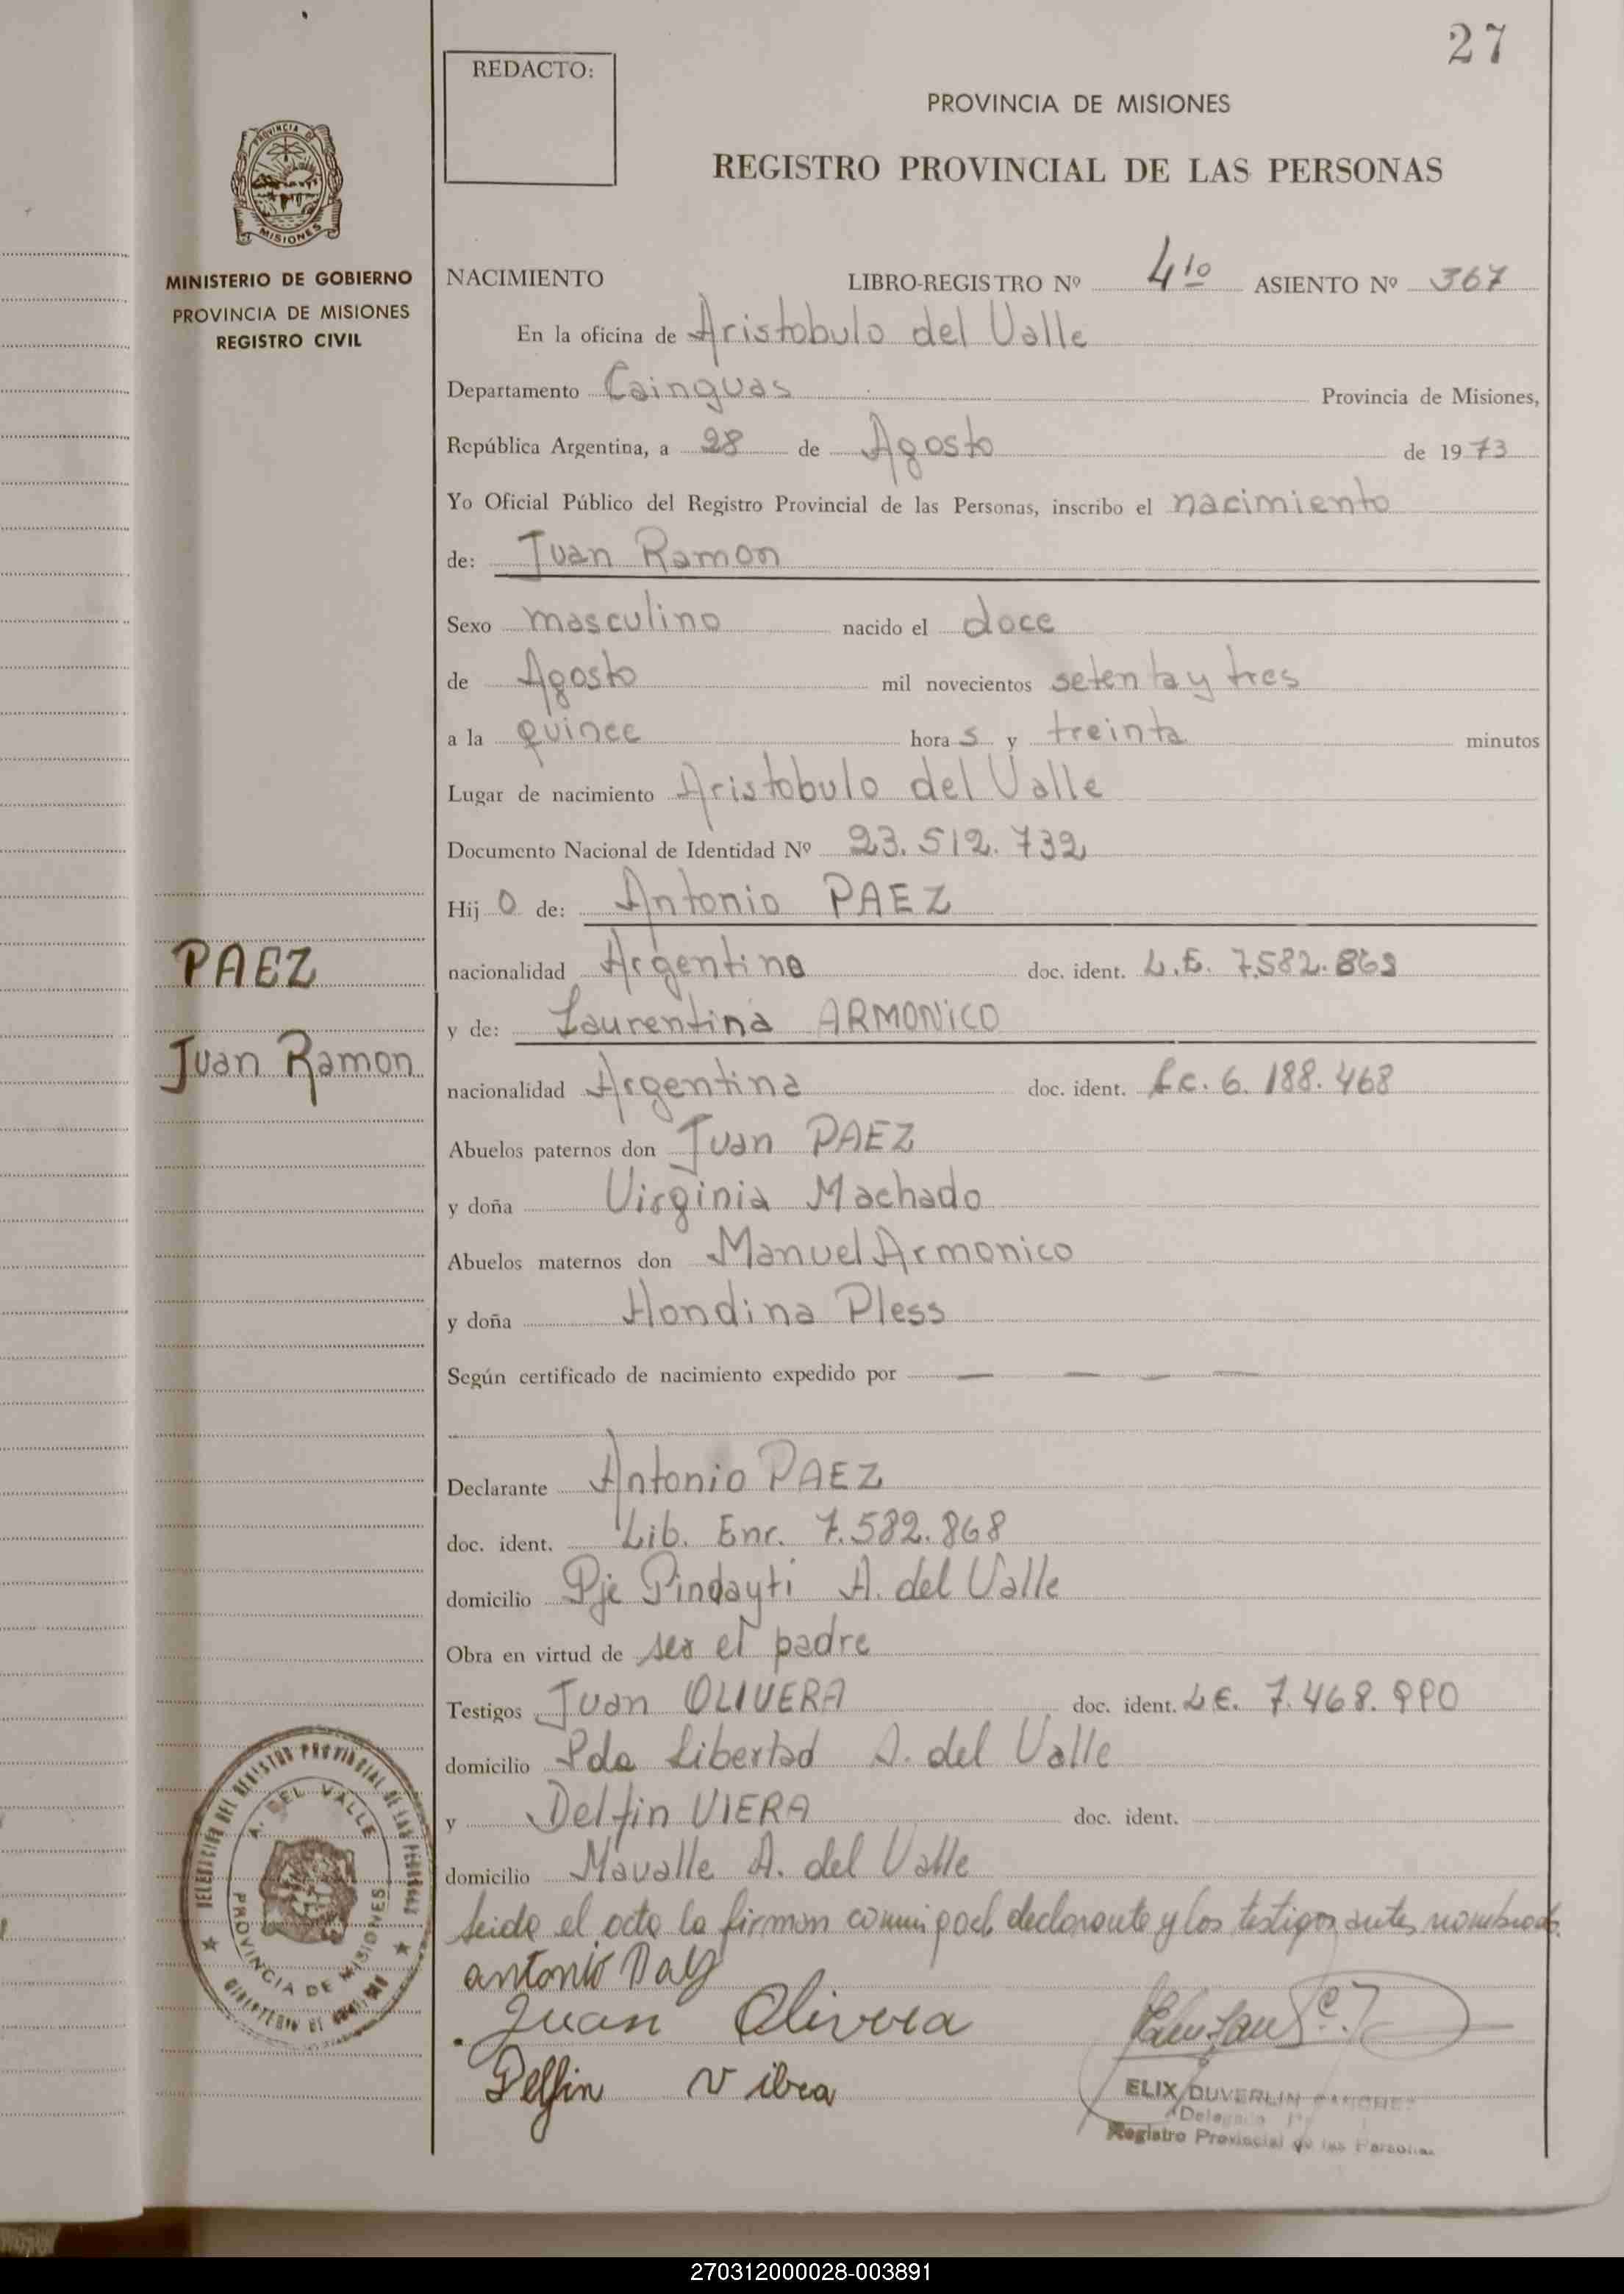 27
REDACTO:
PROVINCIA DE MISIONES
REGISTRO PROVINCIAL DE LAS PERSONAS
PROVINCIA DE
MISIONES
MINISTERIO DE GOBIERNO
PROVINCIA DE MISIONES
REGISTRO CIVIL
NACIMIENTO LIBRO-REGISTRO Nº 4to ASIENTO Nº 367
En la oficina de Aristobulo del Valle
Departamento Cainguas Provincia de Misiones,
República Argentina, a 28 de Agosto de 1973
Yo Oficial Público del Registro Provincial de las Personas, inscribo el nacimiento
de: Juan Ramon
Sexo masculino nacido el doce
de Agosto mil novecientos setenta y tres
a la quince hora s y treinta minutos
Lugar de nacimiento Aristobulo del Valle
Documento Nacional de Identidad Nº 23.512.732
Hij o de: Antonio PAEZ
PAEZ
nacionalidad Argentino doc. ident. L.E. 7.582.868
y de: Laurentina ARMONICO
Juan Ramon
nacionalidad Argentina doc. ident. L.C. 6.188.468
Abuelos paternos don Juan PAEZ
y doña Virginia Machado
Abuelos maternos don Manuel Armonico
y doña Hondina Pless
Según certificado de nacimiento expedido por — — — —
Declarante Antonio PAEZ
doc. ident. Lib. Enr. 7.582.868
domicilio Pje Pindayti A. del Valle
Obra en virtud de ser el padre
Testigos Juan OLIVERA doc. ident. L.E. 7.468.990
domicilio Pda Libertad A. del Valle
y Delfin VIERA doc. ident.
domicilio Mavalle A. del Valle
leido el acta la firman conmigo el declarante y los testigos antes nombrados.
antonio Paez
Juan Olivera
Delfin Vibra
ELIX DUVERLIN SANCHEZ
Registro Provincial de las Personas
DELEGACION DEL REGISTRO PROVINCIAL DE LAS PERSONAS
A. DEL VALLE
PROVINCIA DE MISIONES
270312000028-003891